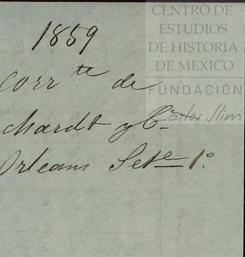 1859
CENTRO DE
ESTUDIOS
DE HISTORIA
DE MEXICO
FUNDACIÓN
Carlos Slim
corr.te de
chardt y Ca
Orleans Sete 1º